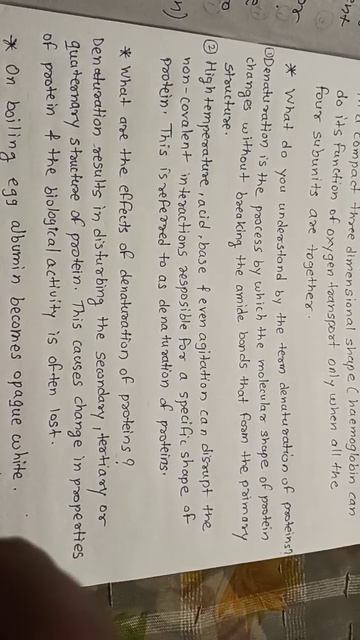 compact three dimensional shape (haemoglobin can
do its function of oxygen transport only when all the
four subunits are together.
* What do you understand by the term denaturation of proteins?
① Denaturation is the process by which the molecular shape of protein
changes without breaking the amide bonds that form the primary
structure.
② High temperature, acid, base & even agitation can disrupt the
non-covalent interactions resposible for a specific shape of
protein. This is referred to as denaturation of proteins.
* What are the effects of denaturation of proteins?
Denaturation results in disturbing the secondary, tertiary or
quaternary structure of protein. This causes change in properties
of protein & the biological activity is often lost.
* On boiling egg albumin becomes opaque white.